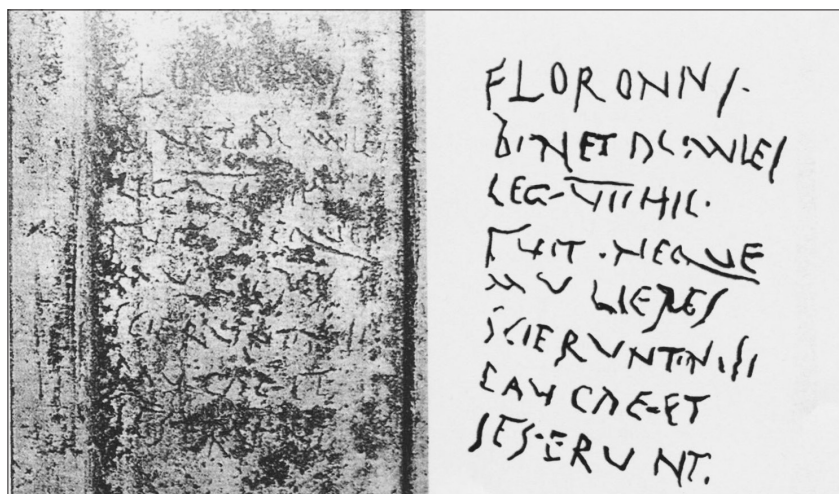 FLORONIVS
BINETAS MILES
LEG VII HIC
FUIT · NEQUE
MULIERES
SCIERUNT NISI
PAUCAE ET
SES·ERUNT.